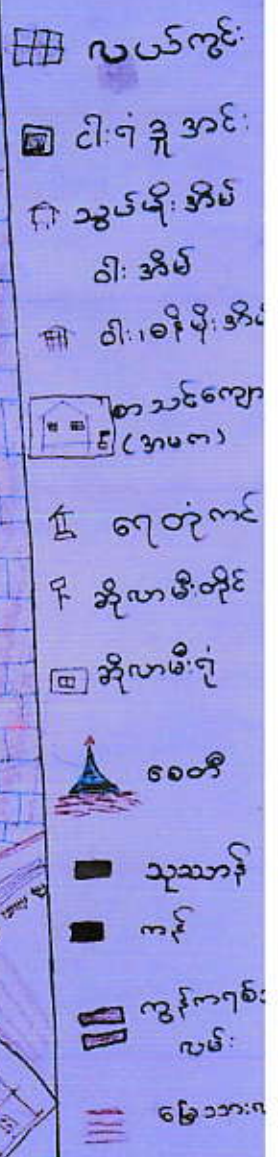 လယ်ကွင်း
ငါး၊ ဂုံ ဒူ အင်း
သွပ်မိုး အိမ်
ဝါး အိမ်
ဝါး၊ ဓနိ မိုး အိမ်
စာသင်ကျော
(အမက)
ရေတုံကင်
ဆိုလာမီးတိုင်
ဆိုလာမီးရုံ
စေတီ
သုဿာန်
ကန်
ကွန်ကရစ်
လမ်း
မြေသား